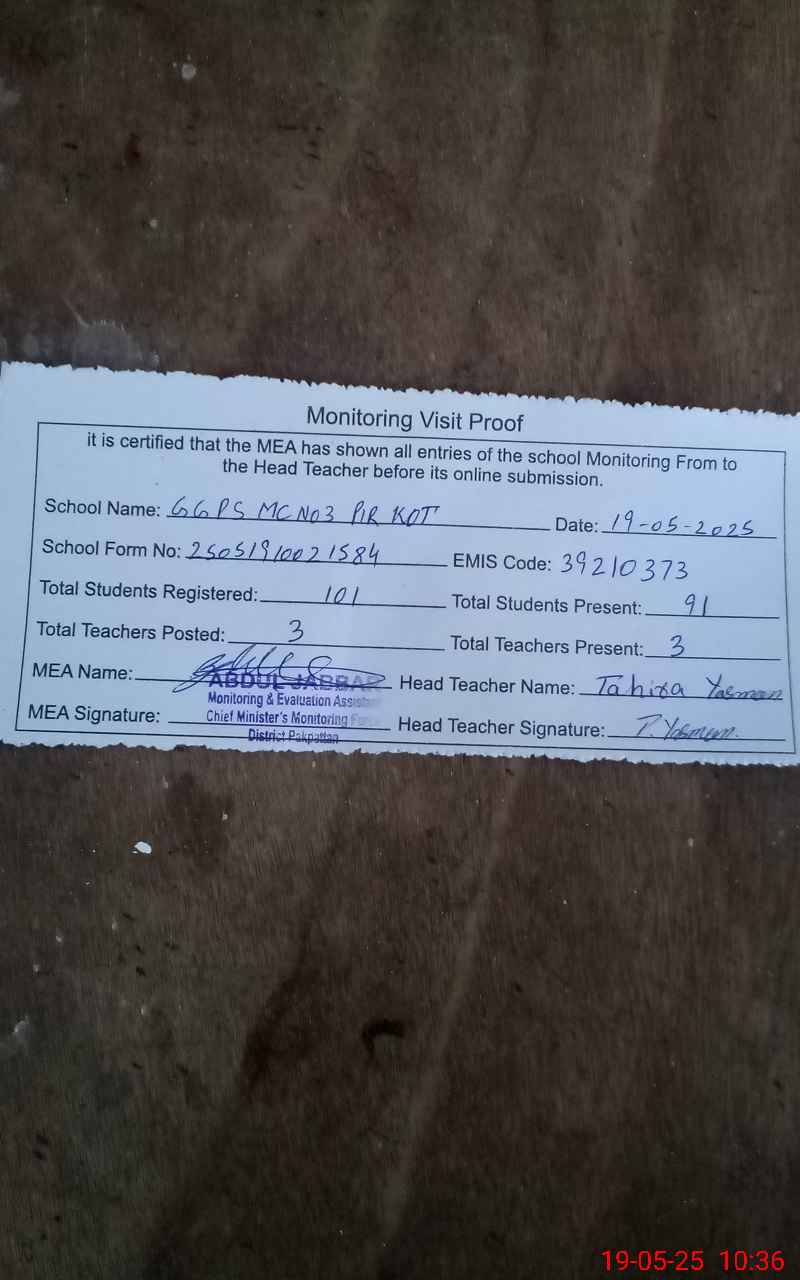 Monitoring Visit Proof
it is certified that the MEA has shown all entries of the school Monitoring From to
the Head Teacher before its online submission.
School Name: GGPS MC NO3 PIR KOT Date: 19-05-2025
School Form No: 25051910021584 EMIS Code: 39210373
Total Students Registered: 101 Total Students Present: 91
Total Teachers Posted: 3 Total Teachers Present: 3
MEA Name: ABDUL JABBAR Head Teacher Name: Tahira Yasmeen
Monitoring & Evaluation Assistant
MEA Signature: Chief Minister's Monitoring Force Head Teacher Signature: T. Yasmeen.
District Pakpattan
19-05-25 10:36